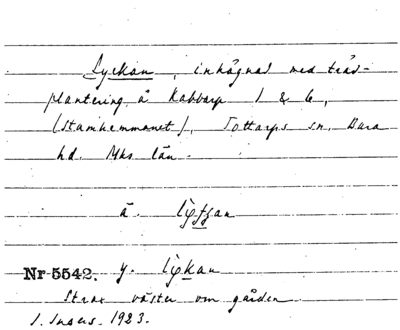 Lyckan, inhägnad med träd-
plantering å Kabbarp 1 & 6,
(Stamhemmanet), Tottarps sn. Bara
hd. Mhs län.
ä.
Nr 5542. y.
Strax väster om gården
I. Ingers. 1923.